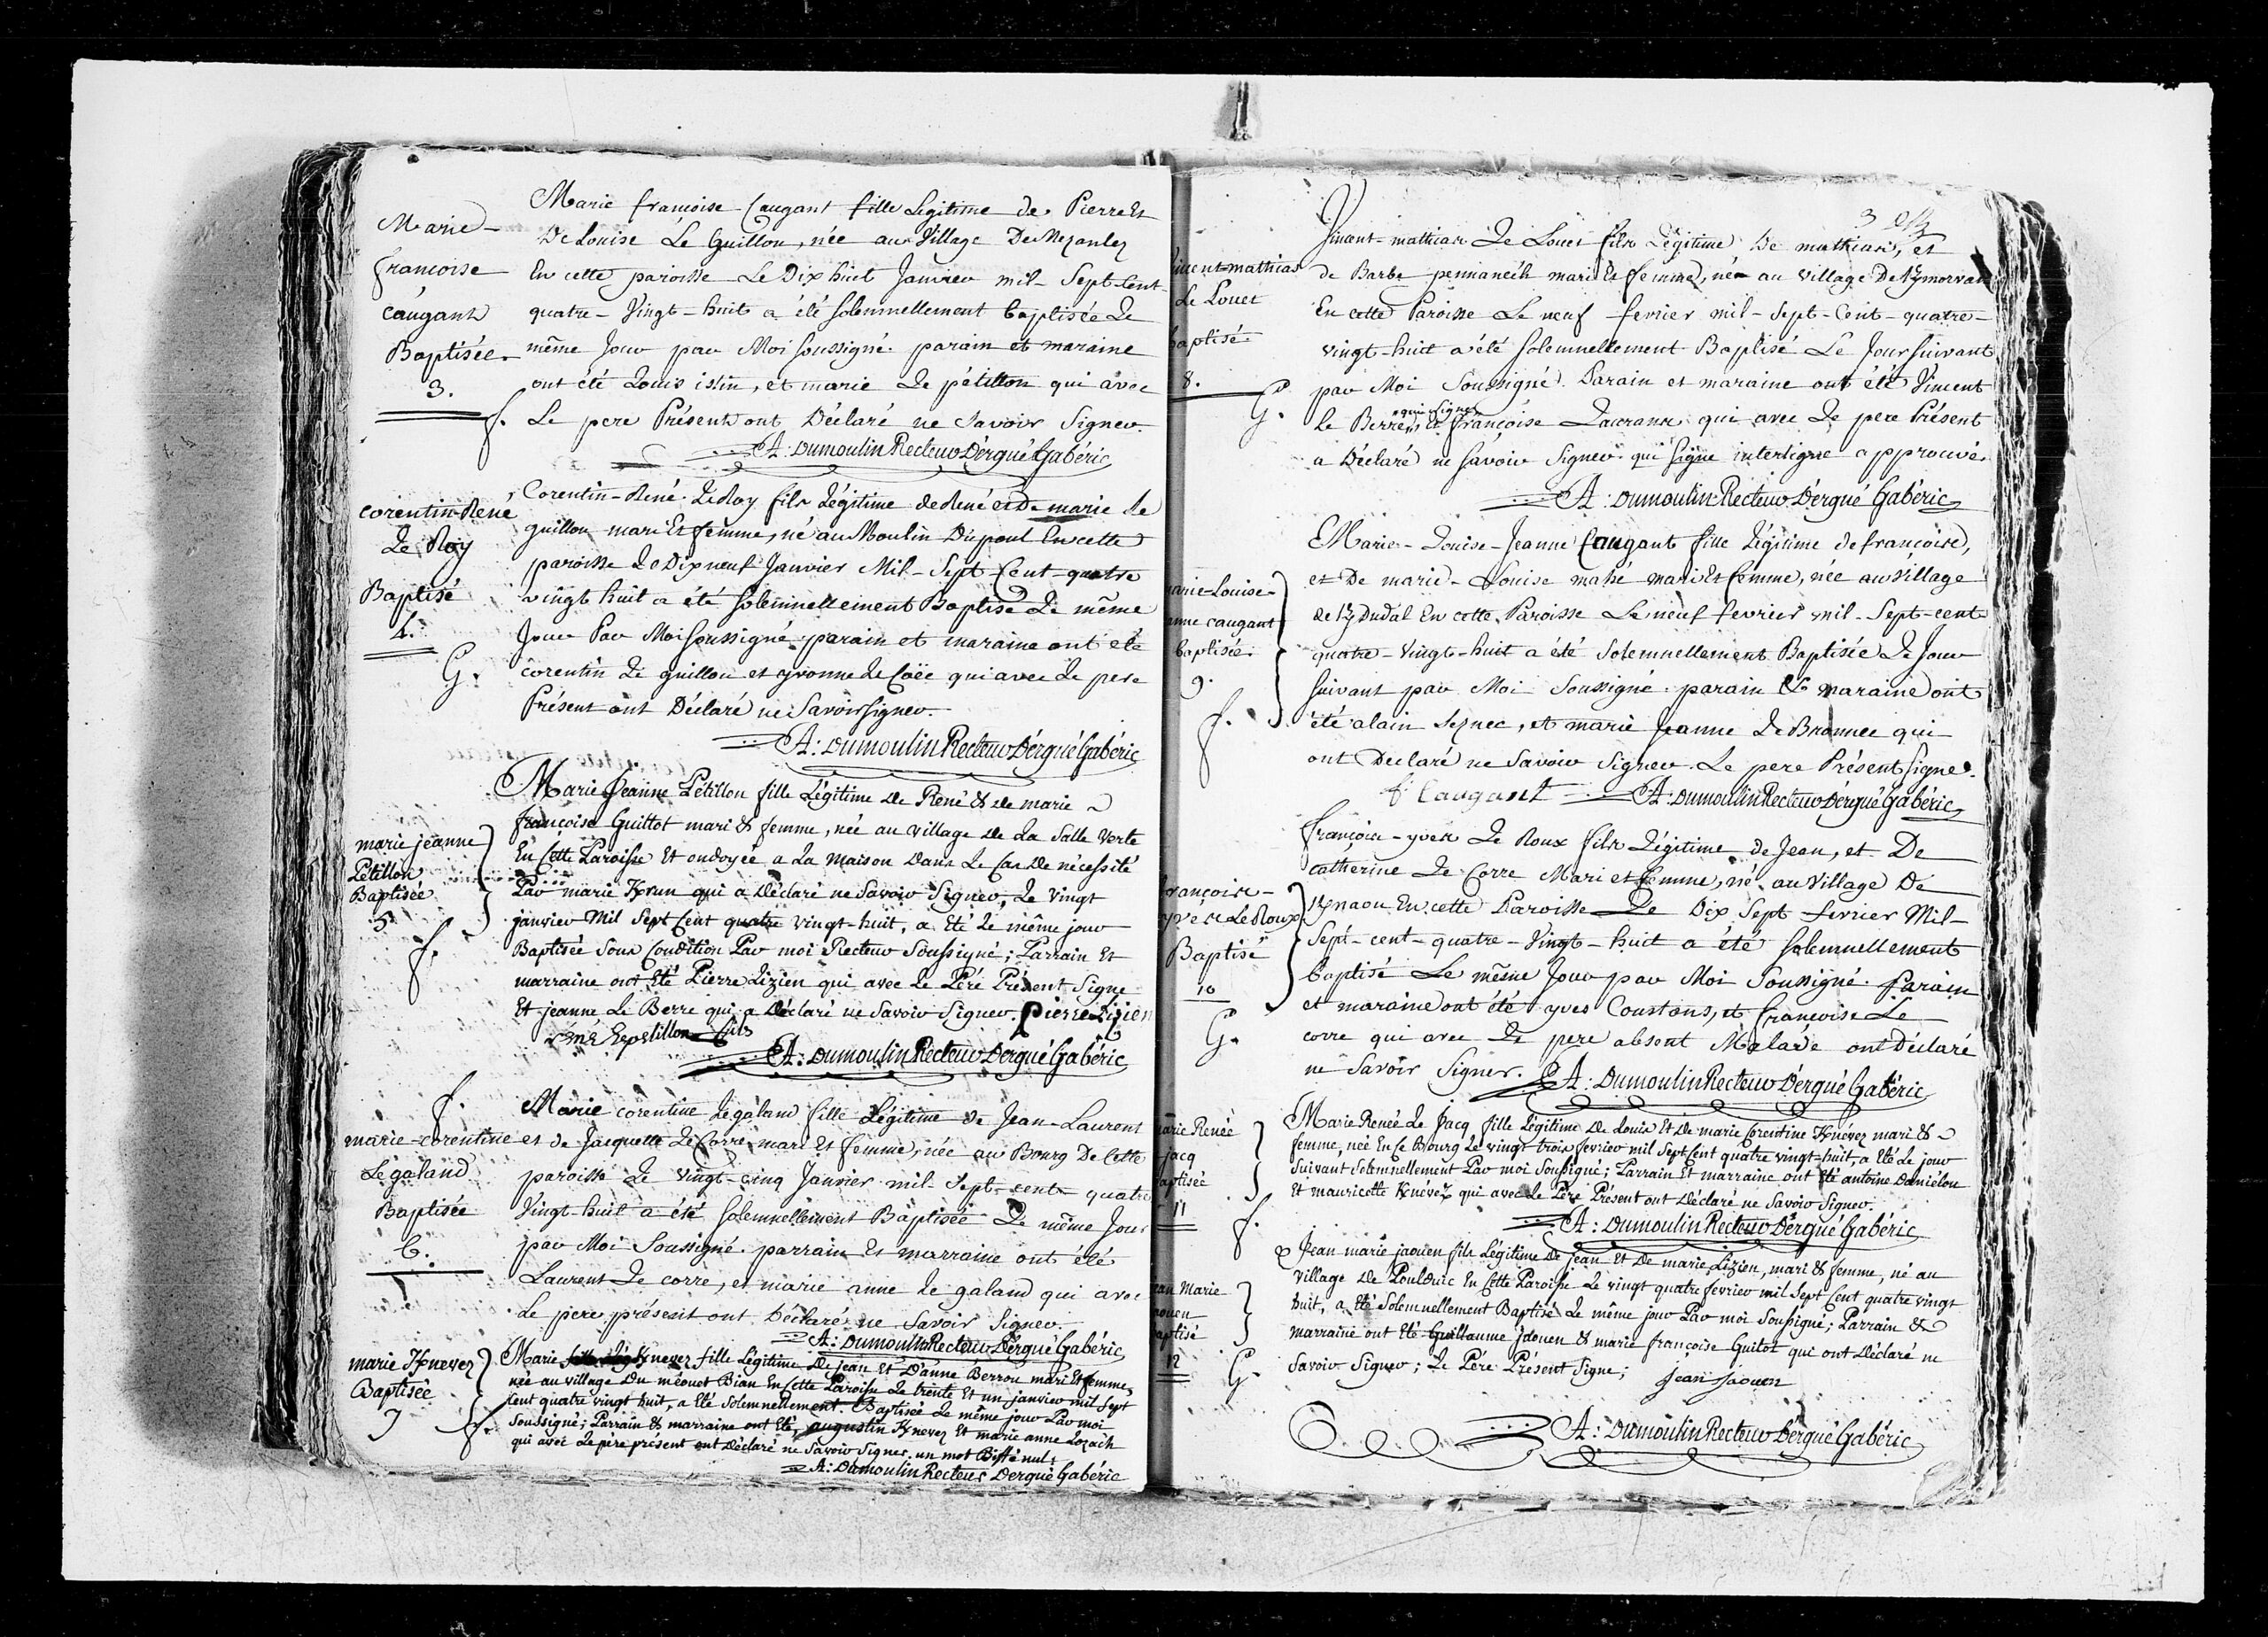 Marie
francoise
caugant
Baptisée
3.
f.
Marie francoise Caugant fille Legitime de Pierre Et
De Louise Le Guillou, née au Village De Mezanlez
En cette paroisse Le Dix huit Janvier mil-Sept-Cent-
quatre-Vingt-huit a été solemnellement baptisée Le
même Jour par Moi soussigné. parain et maraine
ont été Louis istin, et marie Le pétillon qui avec
Le pere Présent ont Déclaré ne Savoir Signer.
A: Dumoulin Recteur D'ergué Gabéric
corentin-René
Le Roy
Baptisé
4.
G.
Corentin-René Le Roy fils Légitime de René et De marie Le
guillou mari Et femme, né au Moulin Du pont En cette
paroisse Le Dix neuf Janvier Mil-Sept-Cent-quatre
vingt huit a été solemnellement Baptisé Le même
Jour Par Moi soussigné. parain et maraine ont été
corentin Le guillou et yvonne Le Coëc qui avec Le pere
Présent ont Déclaré ne Savoir signer.
A: Dumoulin Recteur D'ergué Gabéric
marie jeanne
Pétillon
Baptisée
5
f.
Marie Jeanne Pétillon fille Légitime De René & de marie
françoise Guittot mari & femme, née au village de La Salle Verte
En Cette Paroisse Et ondoyée a La maison Dans Le Cas De nécessité
Par marie Krun qui a Déclaré ne Savoir Signer, Le vingt
janvier Mil Sept Cent quatre vingt-huit, a Eté Le même jour
Baptisée Sous Condition Par moi Recteur Soussigné; Parrain Et
marraine ont Eté Pierre Lizien qui avec Le Péré Présent Signe
Et jeanne Le Berre qui a Déclaré ne Savoir Signer. Pierre Lizien
rené Lepetillon fils
A: Dumoulin Recteur D'ergué Gabéric
f.
marie-corentine
Le galand
Baptisée
6.
Marie corentine Le galand fille Légitime de Jean-Laurent
et de Jacquette Le Corre mari Et femme, née au Bourg De Cette
paroisse Le Vingt-cinq Janvier mil-Sept-cent-quatre
Vingt huit a été solemnellement Baptisée Le même Jour
par Moi Soussigné. parrain Et marraine ont été
Laurent Le corre, et marie anne Le galand qui avec
Le pere présent ont Déclaré ne Savoir Signer.
A: Dumoulin Recteur D'ergué Gabéric
marie Knevez
Baptisée
7
f.
Marie Knevez fille Légitime De jean Et D'anne Berrou mari Et femme,
née au village Du méouet Bian En Cette Paroisse Le trente Et un janvier mil Sept
Cent quatre vingt huit, a Eté Solemnellement Baptisée Le même jour Par moi
Soussigné; Parrain & marraine ont Eté, augustin Knevez Et marie anne Lozach
qui avec Le père présent ont Déclaré ne Savoir Signer. un mot Biffé nul.
A: Dumoulin Recteur D'ergué Gabéric
3
incent-mathias
Le Louet
baptisé
8.
G.
Vincent-mathias Le Louet fils Légitime De mathias, et
de Barbe pennanéch mari Et femme, né au village De Kmorvan
En cette Paroisse Le neuf fevrier mil-Sept-Cent-quatre-
vingt-huit a été solemnellement Baptisé Le Jour suivant
par Moi Soussigné. Parain et maraine ont été Vincent
qui signe
Le Berre, et françoise qui avec Le pere Présent
a Déclaré ne sávoir Signer. qui signe interligne approuvé.
A: Dumoulin Recteur D'ergué Gabéric
arie-Louise-
anne caugant
baptisée
9.
f.
Marie-Louise-Jeanne Caugant fille Légitime de françois,
et De marie-Louise mahé mari Et femme, née au village
de KDudal En cette Paroisse Le neuf fevrier mil-Sept-cent-
quatre-Vingt-huit a été Solemnellement Baptisée Le Jour
suivant par Moi Soussigné. parain Et maraine ont
été alain Seznec, et marie Jeanne Le Brannec qui
ont Declaré ne Savoir Signer. Le pere Présent signe.
f. Caugant A: Dumoulin Recteur D'ergué Gabéric
rançois-
yves Le Roux
Baptisé
10
G.
françois-yves Le Roux fils Légitime de Jean, et De
catherine Le Corre Mari et femme, né au Village De
Knaou En cette Paroisse Le Dix Sept fevrier Mil-
Sept-cent-quatre-Vingt-huit a été solemnellement
baptisé Le même Jour par Moi Soussigné. Parain
et maraine ont été yves Coustans, et francoise Le
corre qui avec Le pere absent Malade ont Déclaré
ne Savoir Signer. A: Dumoulin Recteur D'ergué Gabéric
arie Renée
jacq
aptisée
11
f.
Marie Renée Le Jacq fille Légitime De Louis Et De marie Corentine Knévez mari &
femme, née En Ce Bourg Le vingt trois fevrier mil Sept Cent quatre vingt-huit, a Eté Le jour
Suivant Solemnellement Par moi Soussigné; Parrain Et marraine ont Eté antoine Daniélou
Et mauricette Knévez qui avec Le Père Présent ont Déclaré ne Savoir Signer.
A: Dumoulin Recteur D'ergué Gabéric
ean Marie
aouen
aptisé
12
G.
Jean marie jaouen fils Légitime De jean Et De marie Lizien, mari & femme, né au
village De Poulduic En Cette Paroisse Le vingt quatre fevrier mil Sept Cent quatre vingt
huit, a Eté Solemnellement Baptisé Le même jour Par moi Soussigné; Parrain &
marraine ont Eté Guillaume jaouen & marie françoise Guitot qui ont Déclaré ne
Savoir Signer; Le Pére Présent Signe; jean jaouen
A: Dumoulin Recteur D'ergué Gabéric